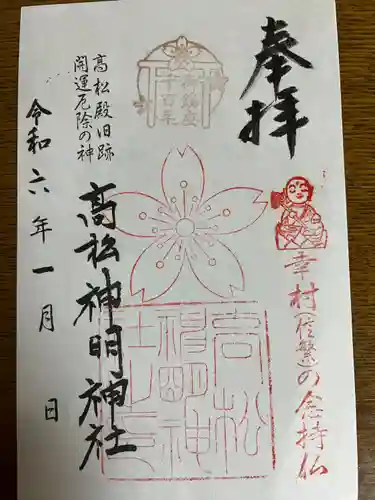 奉拝
幸村(信繁)の念持仏
高松神明神社
高松
神明神
社之印
高松殿旧跡
開運厄除の神
令和六年一月 日